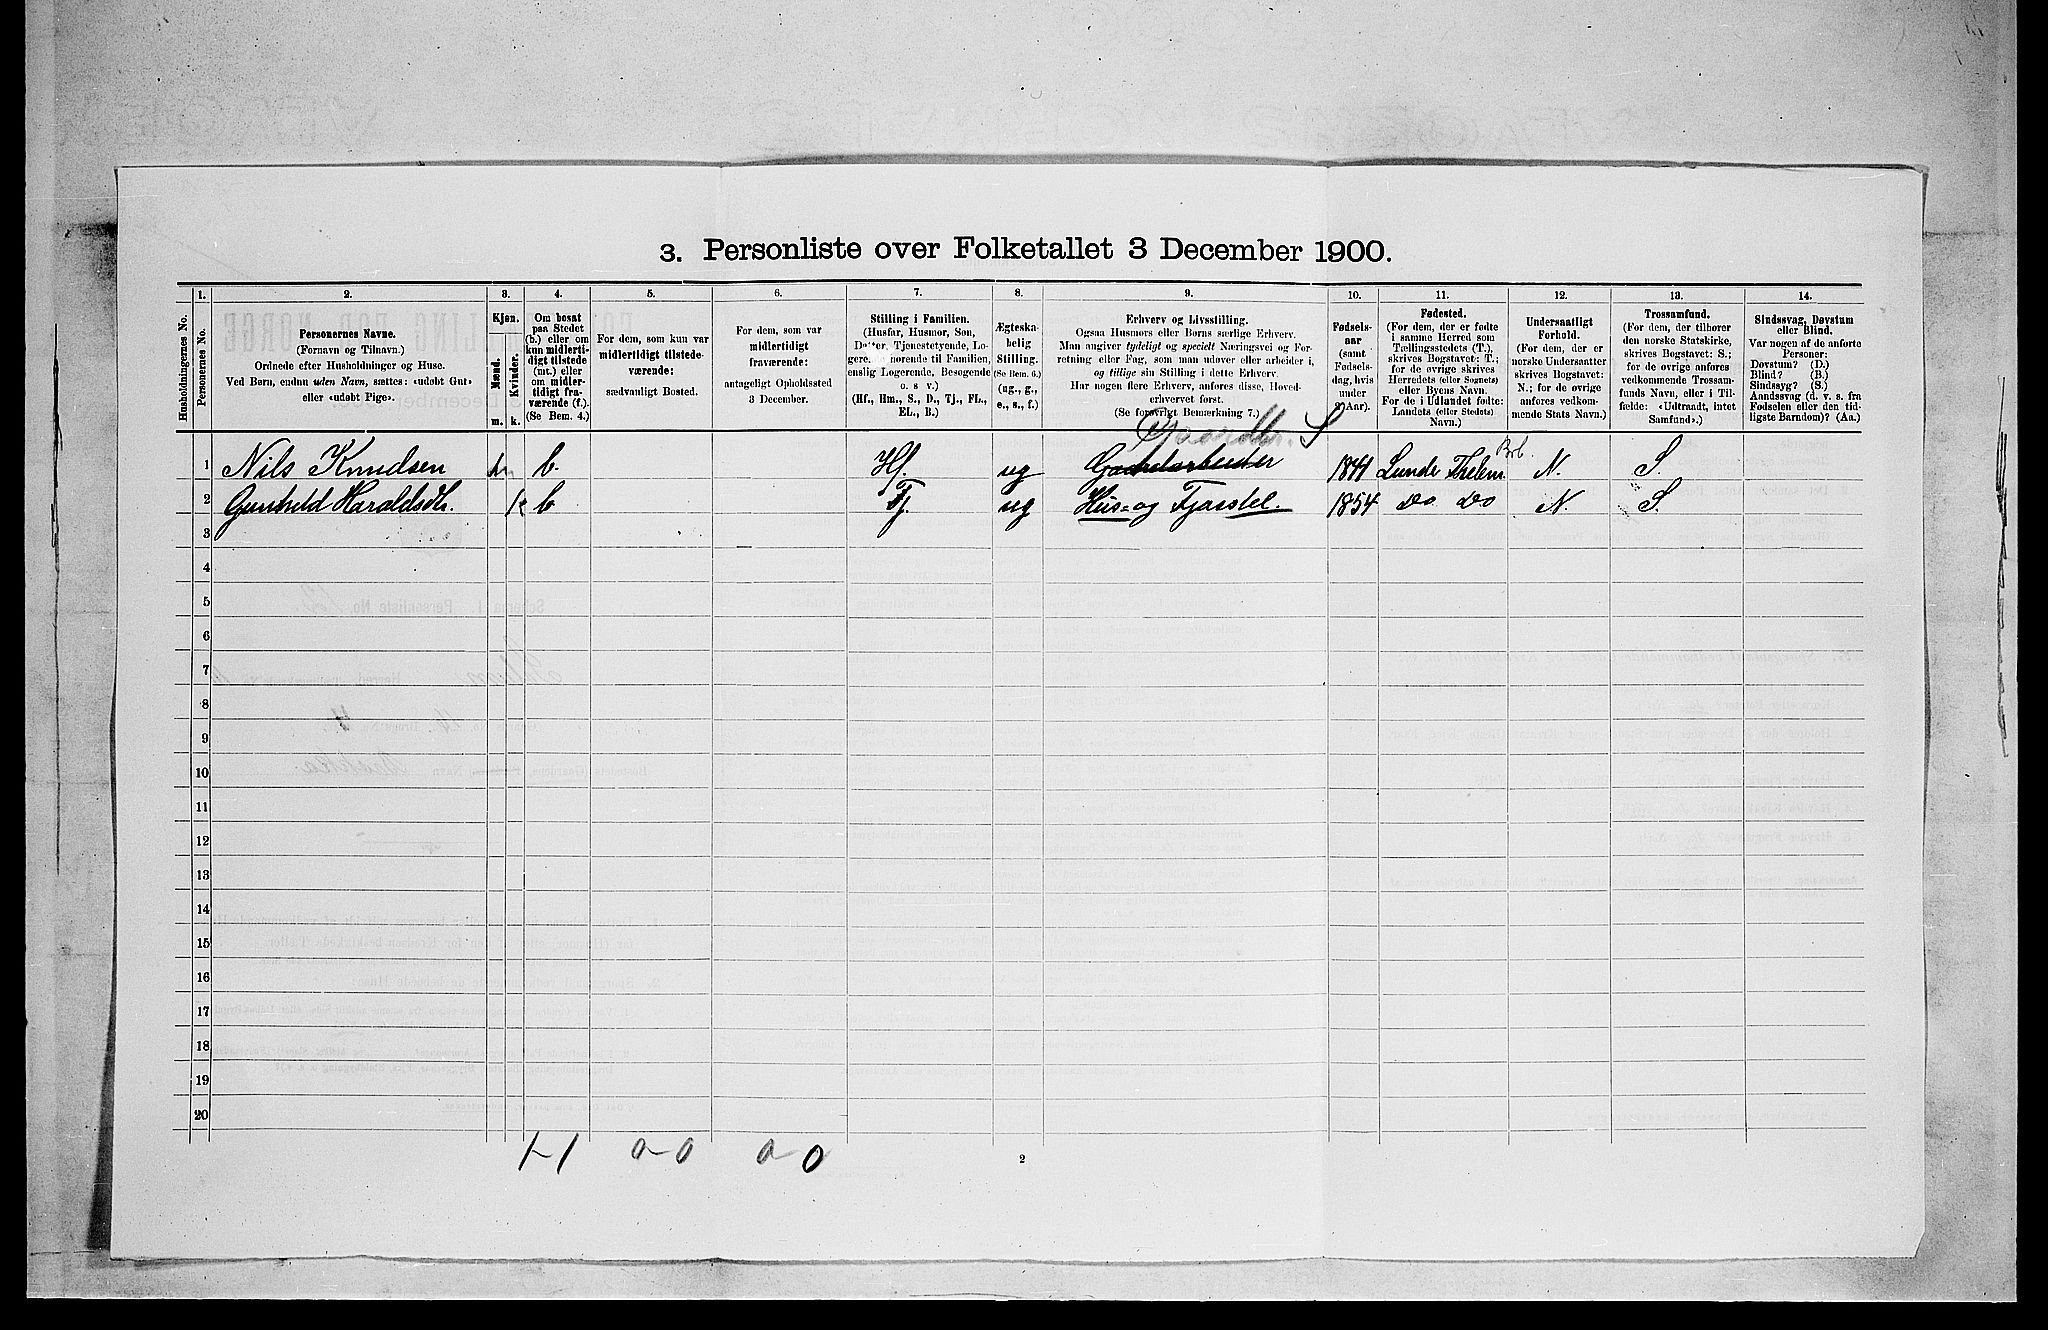 3. Personliste over Folketallet 3 December 1900.
1. 2. 3. 4. 5. 6. 7. 8. 9. 10. 11. 12. 13. 14.
Husholdningernes No.
Personernes No.
Personernes Navne.
(Fornavn og Tilnavn.)
Ordnede efter Husholdninger og Huse.
Ved Børn, endnu uden Navn, sættes: «udøbt Gut»
eller «udøbt Pige».
Kjøn.
Mænd.
Kvinder.
m. k.
Om bosat
paa Stedet
(b.) eller om
kun midlerti-
digt tilstede
(mt.) eller
om midler-
tidigt fra-
værende (f.).
(Se Bem. 4.)
For dem, som kun var
midlertidigt tilstede-
værende:
sædvanligt Bosted.
For dem, som var
midlertidigt
fraværende:
antageligt Opholdssted
3 December.
Stilling i Familien.
(Husfar, Husmor, Søn,
Datter, Tjenestetyende, Lo-
gerende hørende til Familien,
enslig Logerende, Besøgende
o. s v.)
(Hf., Hm., S., D., Tj., FL.,
EL., B.)
Ægteska-
belig
Stilling.
(Se Bem. 6.)
(ug., g.,
e., s., f.)
Erhverv og Livsstilling.
Ogsaa Husmors eller Børns særlige Erhverv.
Man angiver tydeligt og specielt Næringsvei og For-
retning eller Fag, som man udøver eller arbeider i,
og tillige sin Stilling i dette Erhverv.
Har nogen flere Erhverv, anføres disse, Hoved-
erhvervet først.
(Se forøvrigt Bemærkning 7.)
Fødsels-
aar
(samt
Fødsels-
dag, hvis
under
2 Aar).
Fødested.
(For dem, der er fødte
i samme Herred som
Tællingsstedets (T.),
skrives Bogstavet: T.;
for de øvrige skrives
Herredets (eller Sognets)
eller Byens Navn.
For de i Udlandet fødte:
Landets (eller Stedets)
Navn.)
Undersaatligt
Forhold.
(For dem, der er
norske Undersaatter
skrives Bogstavet:
N.; for de øvrige
anføres vedkom-
mende Stats Navn.)
Trossamfund.
(For dem, der tilhører
den norske Statskirke,
skrives Bogstavet: S.;
for de øvrige anføres
vedkommende Trossam-
funds Navn, eller i Til-
fælde: «Udtraadt, intet
Samfund».)
Sindssvag, Døvstum
eller Blind.
Var nogen af de anførte
Personer:
Døvstum? (D.)
Blind? (B.)
Sindssyg? (S.)
Aandssvag (d. v. s. fra
Fødselen eller den tid-
ligste Barndom)? (Aa.)
Gaardbr. S
1 Nils Knudsen m b. Hf. ug Gaardarbeider 1841 Lunde Thelem Brb. N. S.
2 Gunhild Haraldsdtr. k b Tj. ug Hus- og Fjøsstel. 1854 Do Do N. S.
3
4
5
6
7
8
9
10
11
12
13
14
15
16
17
18
19
20
1-1 0-0 0-0
2